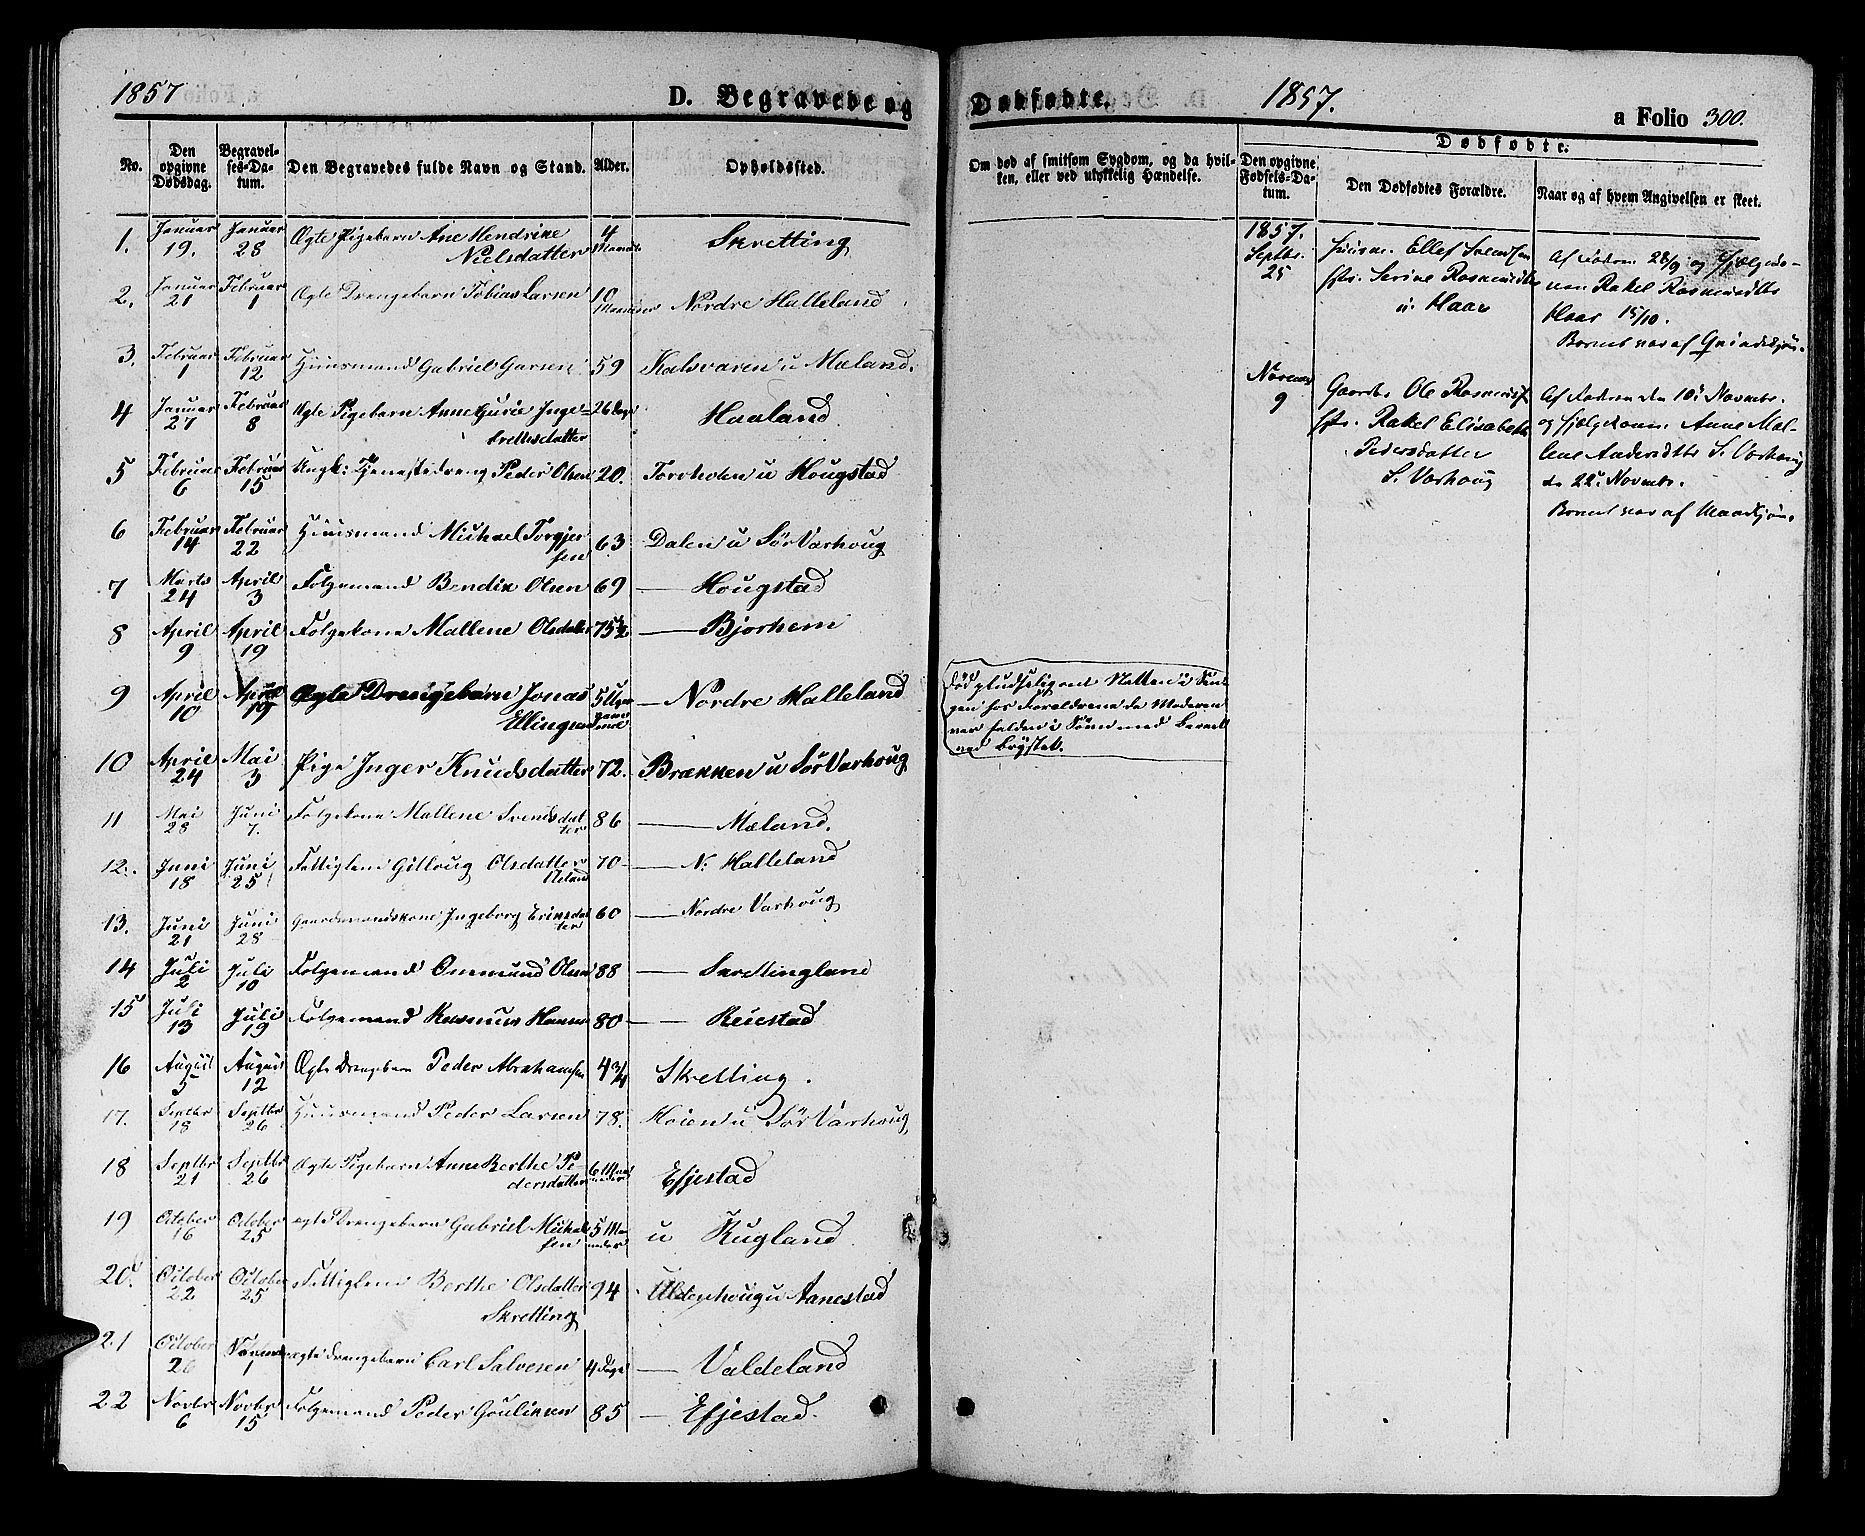 1857 D. Begravede og Dødfødte. 1857. a Folio 300.
No. Den opgivne Dødsdag. Begravelses-Datum. Den Begravedes fulde Navn og Stand. Alder. Opholdssted.
Om død af smitsom Sygdom, og da hvilken, eller ved ulykkelig Hændelse. Den opgivne Fødsels-Datum. Dødfødte. Den Dødfødtes Forældre. Naar og af hvem Angivelsen er skeet.
1. Januar 19. Januar 28 Ægte Pigebarn Ane Hendrine Nielsdatter 4 Skretting
2. Januar 21 Februar 1 Ægte Drengebarn Tobias Larsen 10 Maaneder Nordre Halleland
3. Februar 1 Februar 12 Huusmand Gabriel 59 Kalsvaren u Mæland.
4 Januar 27 Februar 8 Ægte Pigebarn Anne Gurie Ingebrettsdatter 26 Dage Haaland
5 Februar 6 Februar 15 Ungk: Tjenestedreng Peder Olsen 20. u Hougstad
6 Februar 14 Februar 22 Huusmand Michael Torgjersen 63 Dalen u Sør Varhoug
7 Marts 24 April 3 Folgemand Bendix Olsen 69 — Hougstad
8 April 9 April 19 Folgekone Mallene Olsdatter 75 — Bjorhem
9 April 10 April 19 Ægte Drengebarn Jonas Ellingsen 5 Uger — Nordre Halleland
10 April 24 Mai 3 Pige Inger Knudsdatter 72. Brækken u Sør Varhoug
11 Mai 28 Juni 7. Folgekone Mallene Svendsdatter 86 — Mæland.
12. Juni 18 Juni 25 Fattiglem Gitloug Olsdatter 70 — N. Halleland
13. Juni 21 Juni 28 Gaardmandskone Ingeborg Eriksdatter 60 — Nordre Varhoug
14 Juli 2 Juli 10 Folgemand Ommund Olsen 88 — Skrettingland
15 Juli 13 Juli 19 Folgemand Rasmus Hansen 80 — Reiestad
16 August 5 August 12 Ægte Drengebarn Peder Abrahamsen 4 3/4 Skretting.
17. Septbr 18 Septbr 26 Huusmand Peder Larsen 78. Høien u Sør Varhoug
18 Septbr 21 Septbr 26 Ægte Pigebarn Anne Berthe Pedersdatter 6 Maaneder Efjestad
19 October 16 October 25 ægte Drengebarn Gabriel Michalsen 5 Maaneder u Kugland
20. October 22 October 25 Fattiglem Berthe Olsdatter Skretting 94 u Aanestad
21 October Novembr 1 ægte Drengebarn Carl Salvesen 4 Dage — Valdeland
22 Novbr 6 Novbr 15 Folgemand Peder Gouliksen 85 — Efjestad.
Død pludselig om Natten i Sengen hos Forældrene da Moderen
var falden i Søvn med Barnet
ved Brystet.
1857. Septbr. 25 Huusm. Ellef Svendsen
Htr. Serine Rasmusdtr
u. Haar
Af Faderen 28/9 og Hjælpekonen Rakel Rasmusdtr
Haar 15/10.
Barnet var af Qvindekjøn.
Novembr 9 Gaardbr Ole Rasmusen
Htr. Rakel Elisabeth
Pedersdatter
S. Varhoug
Af Faderen den 10. Novembr.
og Hjælpekonen Anne Malene Andersdtr S. Varhoug
d. 22. Novembr.
Barnet var af Mandkjøn.